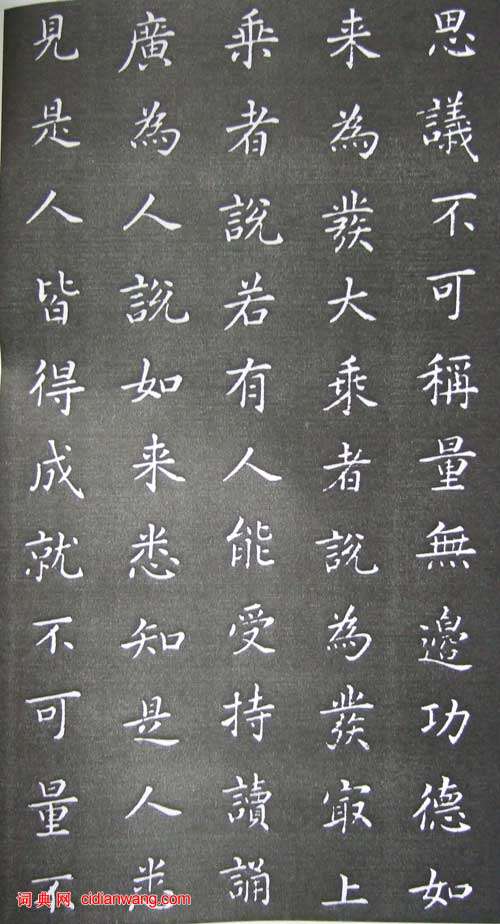 思議不可稱量無邊功德如
来為發大乘者說為發冣上
乗者說若有人能受持讀誦
廣為人說如来悉知是人悉
見是人皆得成就不可量不
词典网 cidianwang.com